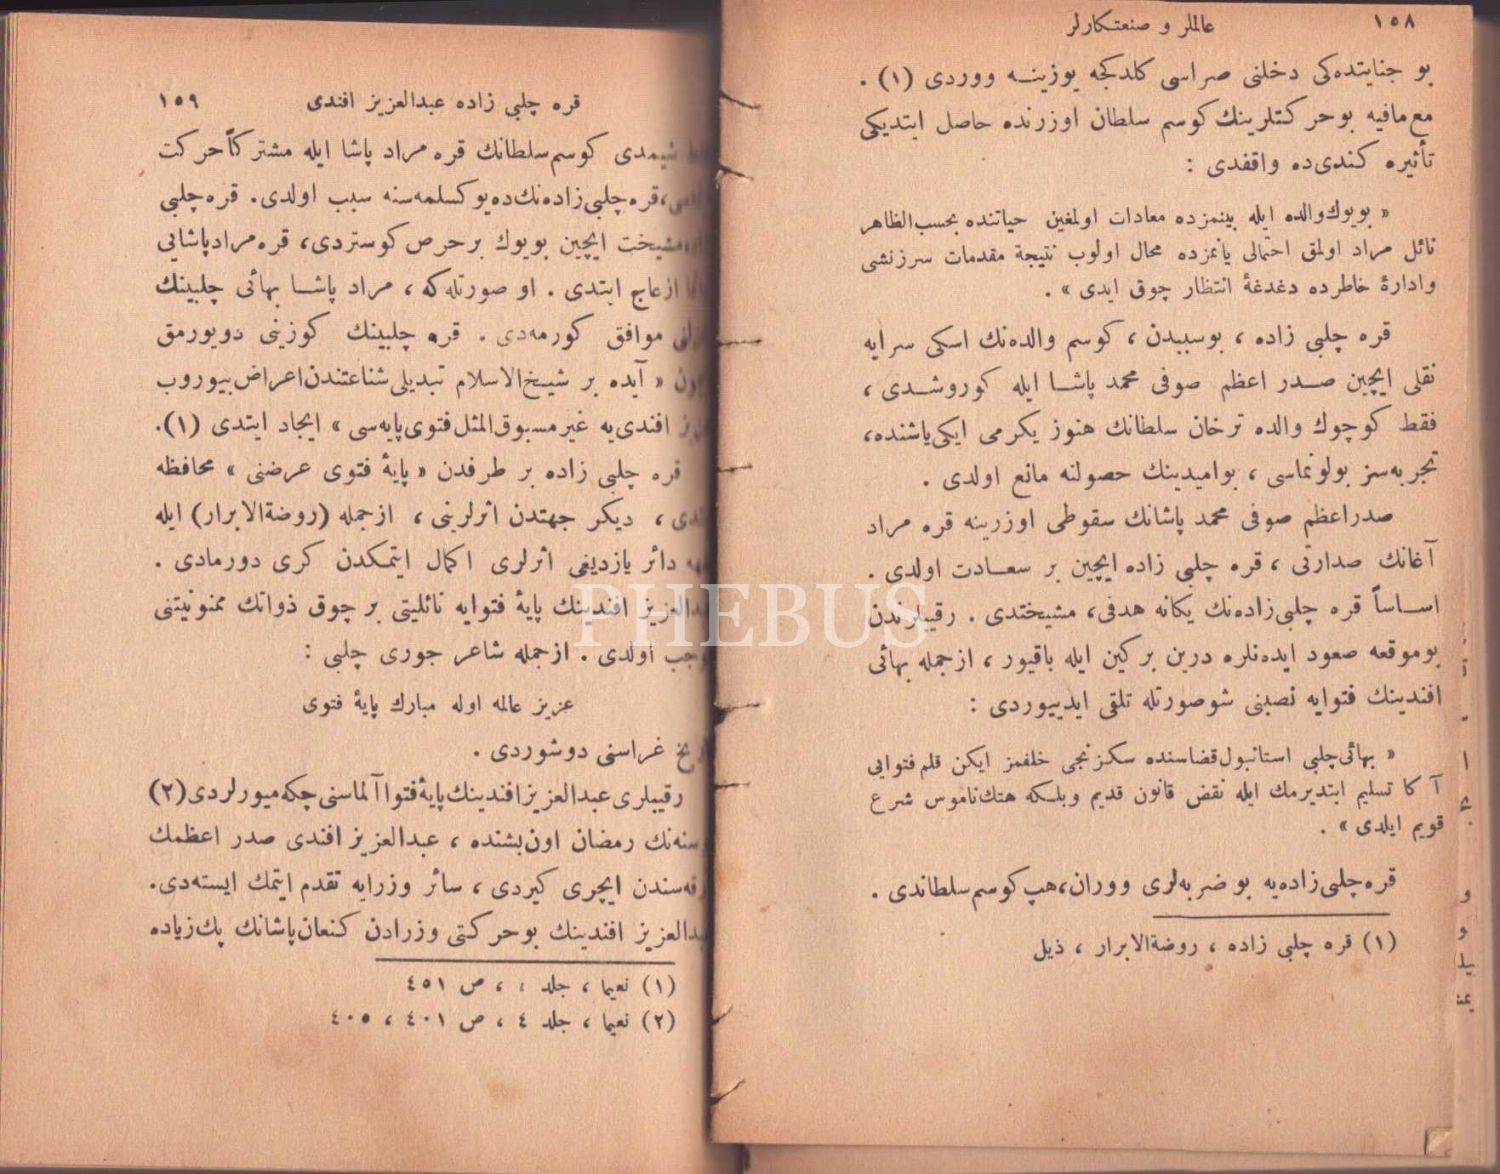 ١٥٨ عالملر و صنعتكارلر
بو جنايتده كی دخلنی صراسی كلدكجه يوزينه ووردی (١) .
مع مافيه بو حركتلرينك كوسم سلطان اوزرنده حاصل ايتديكی
تأثيره كندی ده واقفدی :
« بويوك والده ايله بينمزده معادات اولمغين حياتنده بحسب الظاهر
نائل مراد اولمق احتمالی يانمزده محال اولوب نتيجة مقدمات سرزنشی
وادارۀ خاطرده دغدغۀ انتظار چوق ايدی » .
قره چلبی زاده ، بوسببدن ، كوسم والده نك اسكی سرايه
نقلی ايچين صدر اعظم صوفی محمد پاشا ايله كوروشدی ،
فقط كوچوك والده ترخان سلطانك هنوز يكرمی ايكی ياشنده ،
تجربه سز بولونماسی ، بواميدينك حصولنه مانع اولدی .
صدراعظم صوفی محمد پاشانك سقوطی اوزرينه قره مراد
آغانك صدارتی ، قره چلبی زاده ايچين بر سعادت اولدی .
اساساً قره چلبی زاده نك يكانه هدفی ، مشيختدی . رقيبلرندن
بوموقعه صعود ايده نلره درين بركين ايله باقيور ، ازجمله بهائی
افندينك فتوايه نصبنی شوصورتله تلقی ايدييوردی :
« بهائی چلبی استانبول قضاسنده سكزنجی خلفمز ايكن قلم فتوايی
آ كا تسليم ايتديرمك ايله نقض قانون قديم وبلكه هتك ناموس شرع
قويم ايلدی » .
قره چلبی زاده يه بو ضربه لری ووران ، هپ كوسم سلطاندی .
(١) قره چلبی زاده ، روضة الابرار ، ذيل
قره چلبی زاده عبدالعزيز افندی ١٥٩
شيمدی كوسم سلطانك قره مراد پاشا ايله مشتركاً حركت
، قره چلبی زاده نك ده يوكسلمه سنه سبب اولدی . قره چلبی
مشيخت ايچين بويوك بر حرص كوستردی ، قره مراد پاشايی
ازعاج ايتدی . او صورتله كه ، مراد پاشا بهائی چلبينك
موافق كورمه دی . قره چلبينك كوزينی دويورمق
« آيده بر شيخ الاسلام تبديلی شناعتندن اعراض بيوروب
افندی يه غير مسبوق المثل فتوی پايه سی » ايجاد ايتدی (١) .
قره چلبی زاده بر طرفدن « پايۀ فتوی عرضنی » محافظه
، ديكر جهتدن اثرلرينی ، ازجمله (روضة الابرار) ايله
دائر يازديغی اثرلری اكمال ايتمكدن كری دورمادی .
عبدالعزيز افندينك پايۀ فتوايه نائليتی بر چوق ذواتك ممنونيتنی
اولدی . ازجمله شاعر جوری چلبی :
عزيز عالمه اوله مبارك پايۀ فتوی
غراسنی دوشوردی .
رقيبلری عبدالعزيز افندينك پايۀ فتوا آلماسنی چكه ميورلردی (٢)
سنه نك رمضان اون بشنده ، عبدالعزيز افندی صدر اعظمك
ايچری كيردی ، سائر وزرايه تقدم ايتمك ايسته دی .
عبدالعزيز افندينك بو حركتی وزرادن كنعان پاشانك پك زياده
(١) نعيما ، جلد ، ص ٤٥١
(٢) نعيما ، جلد ٤ ، ص ٤٠١ ، ٤٠٥
PHEBUS